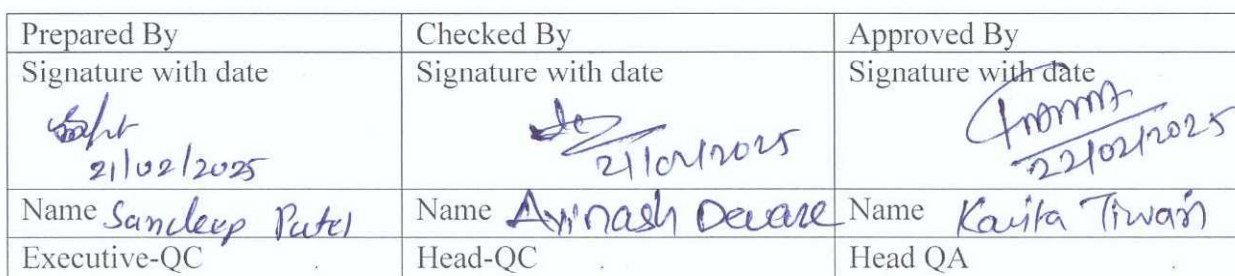 Prepared By Checked By Approved By
Signature with date Signature with date Signature with date
21/02/2025 21/02/2025 22/02/2025
Name Sandeep Patel Name Avinash Deware Name Kavita Tiwari
Executive-QC Head-QC Head QA